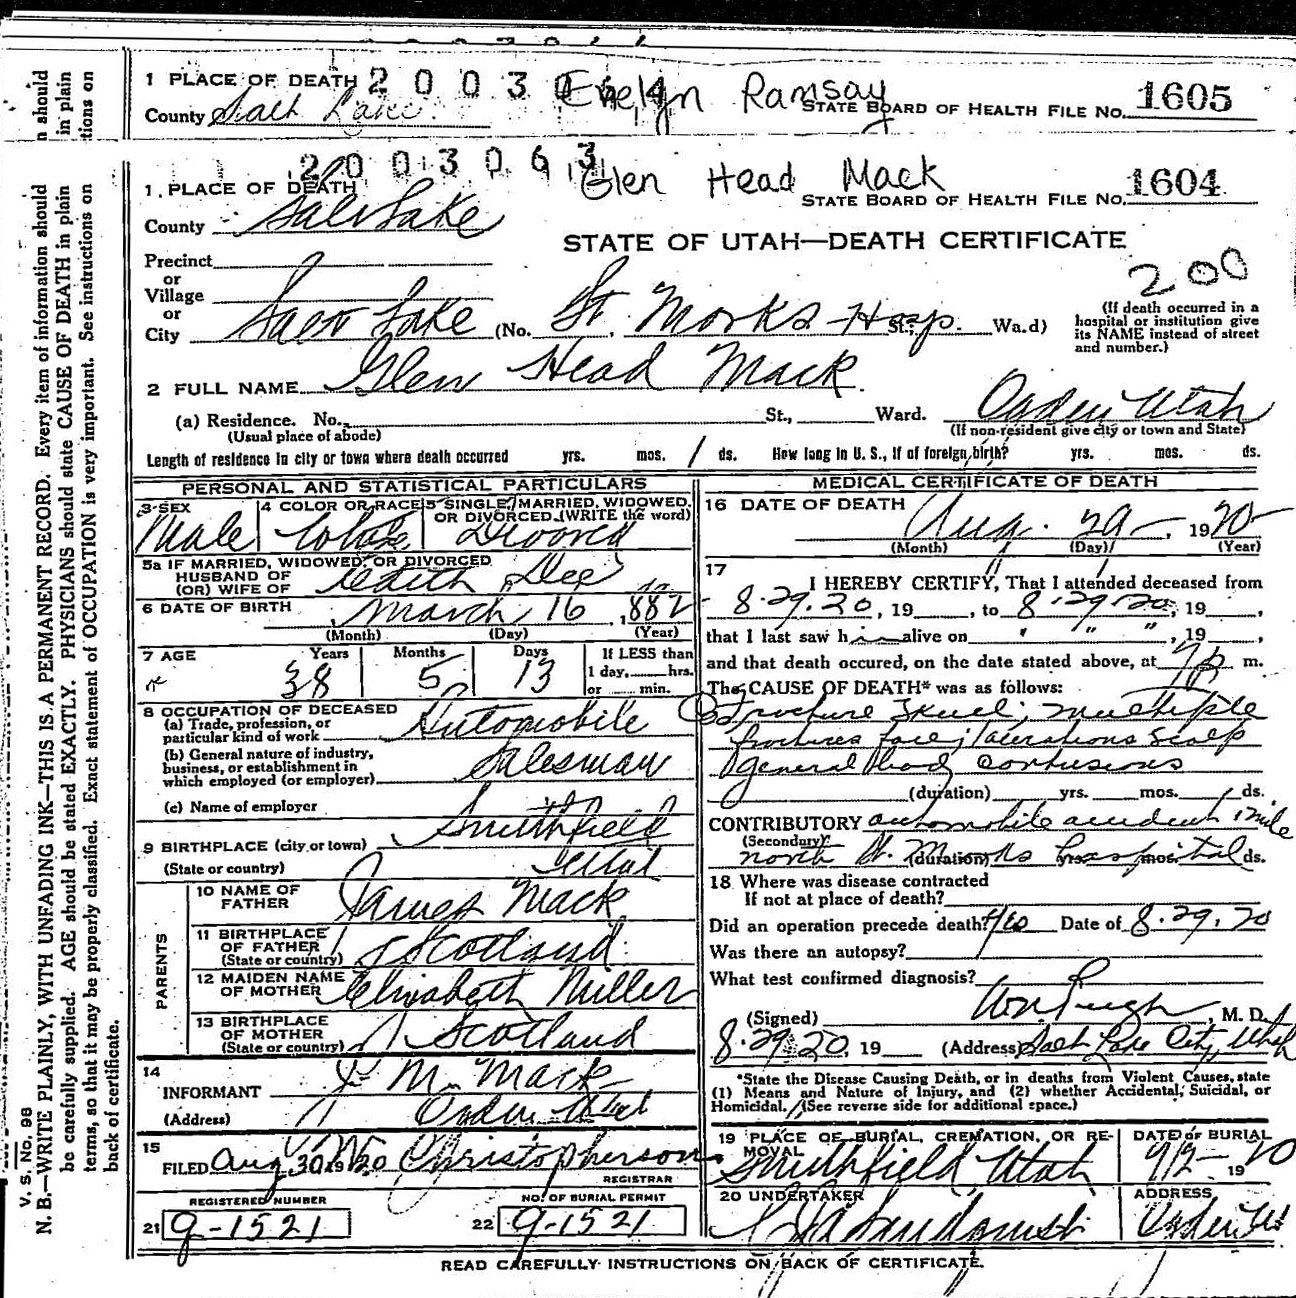 1 PLACE OF DEATH 2003064 Evelyn Ramsay
County Salt Lake STATE BOARD OF HEALTH FILE NO. 1605
2003063 Glen Head Mack
1. PLACE OF DEATH STATE BOARD OF HEALTH FILE NO. 1604
County Salt Lake
STATE OF UTAH—DEATH CERTIFICATE
200
Precinct
or
Village
or
City Salt Lake (No. St. Marks Hosp. St.; Wa.d)
(If death occurred in a
hospital or institution give
its NAME instead of street
and number.)
2 FULL NAME Glen Head Mack
(a) Residence. No. St., Ward. Ogden Utah
(Usual place of abode) (If non-resident give city or town and State)
Length of residence in city or town where death occurred yrs. mos. 1 ds. How long in U. S., if of foreign birth? yrs. mos. ds.
PERSONAL AND STATISTICAL PARTICULARS
3 SEX 4 COLOR OR RACE 5 SINGLE, MARRIED, WIDOWED,
OR DIVORCED (WRITE the word)
Male White Divorced
5a IF MARRIED, WIDOWED, OR DIVORCED
HUSBAND OF
(OR) WIFE OF Edith Dee
6 DATE OF BIRTH March 16, 1882
(Month) (Day) (Year)
7 AGE Years Months Days If LESS than
1 day, hrs.
or min.
38 5 13
8 OCCUPATION OF DECEASED
(a) Trade, profession, or
particular kind of work Automobile
(b) General nature of industry,
business, or establishment in
which employed (or employer) Salesman
(c) Name of employer
9 BIRTHPLACE (city or town) Smithfield
(State or country) Utah
PARENTS
10 NAME OF
FATHER James Mack
11 BIRTHPLACE
OF FATHER
(State or country) Scotland
12 MAIDEN NAME
OF MOTHER Elizabeth Miller
13 BIRTHPLACE
OF MOTHER
(State or country) Scotland
14
INFORMANT J. M. Mack
(Address) Ogden Utah
15
FILED Aug 30 1920 Christopherson
REGISTRAR
REGISTERED NUMBER NO. OF BURIAL PERMIT
21 9-1521 22 9-1521
MEDICAL CERTIFICATE OF DEATH
16 DATE OF DEATH
Aug. 29, 1920
(Month) (Day) (Year)
17
I HEREBY CERTIFY, That I attended deceased from
8.29.20, 19 , to 8.29.20, 19 ,
that I last saw him alive on " " ", 19 ,
and that death occured, on the date stated above, at m.
The CAUSE OF DEATH* was as follows:
Fracture Skull; multiple
fractures face; lacerations scalp
general body contusions
(duration) yrs. mos. ds.
CONTRIBUTORY automobile accident 1 mile
(Secondary)
north St. Marks hospital (duration) yrs. mos. ds.
18 Where was disease contracted
If not at place of death?
Did an operation precede death? No Date of 8.29.20
Was there an autopsy?
What test confirmed diagnosis?
(Signed) Wm Pugh, M. D.
8.29.20, 19 (Address) Salt Lake City, Utah
*State the Disease Causing Death, or in deaths from Violent Causes, state
(1) Means and Nature of Injury, and (2) whether Accidental, Suicidal, or
Homicidal. (See reverse side for additional space.)
19 PLACE OF BURIAL, CREMATION, OR RE-
MOVAL DATE OF BURIAL
Smithfield, Utah 9/2 1920
20 UNDERTAKER ADDRESS
Ogden Ut
READ CAREFULLY INSTRUCTIONS ON BACK OF CERTIFICATE.
V. S. No. 98
N. B.—WRITE PLAINLY, WITH UNFADING INK—THIS IS A PERMANENT RECORD. Every item of information should
be carefully supplied. AGE should be stated EXACTLY. PHYSICIANS should state CAUSE OF DEATH in plain
terms, so that it may be properly classified. Exact statement of OCCUPATION is very important. See instructions on
back of certificate.
n should
in plain
tions on